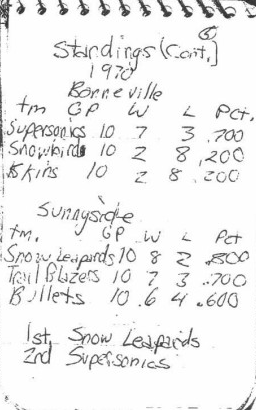 5
Standings (Cont.)
1970
Bonneville
tm GP W L Pct.
Supersonics 10 7 3 .700
Snowbirds 10 2 8 .200
Skins 10 2 8 .200
Sunnyside
tm. GP W L Pct
Snow Leopards 10 8 2 .800
Trail Blazers 10 7 3 .700
Bullets 10 .6 4 .600
1st, Snow Leopards
2nd Supersonics